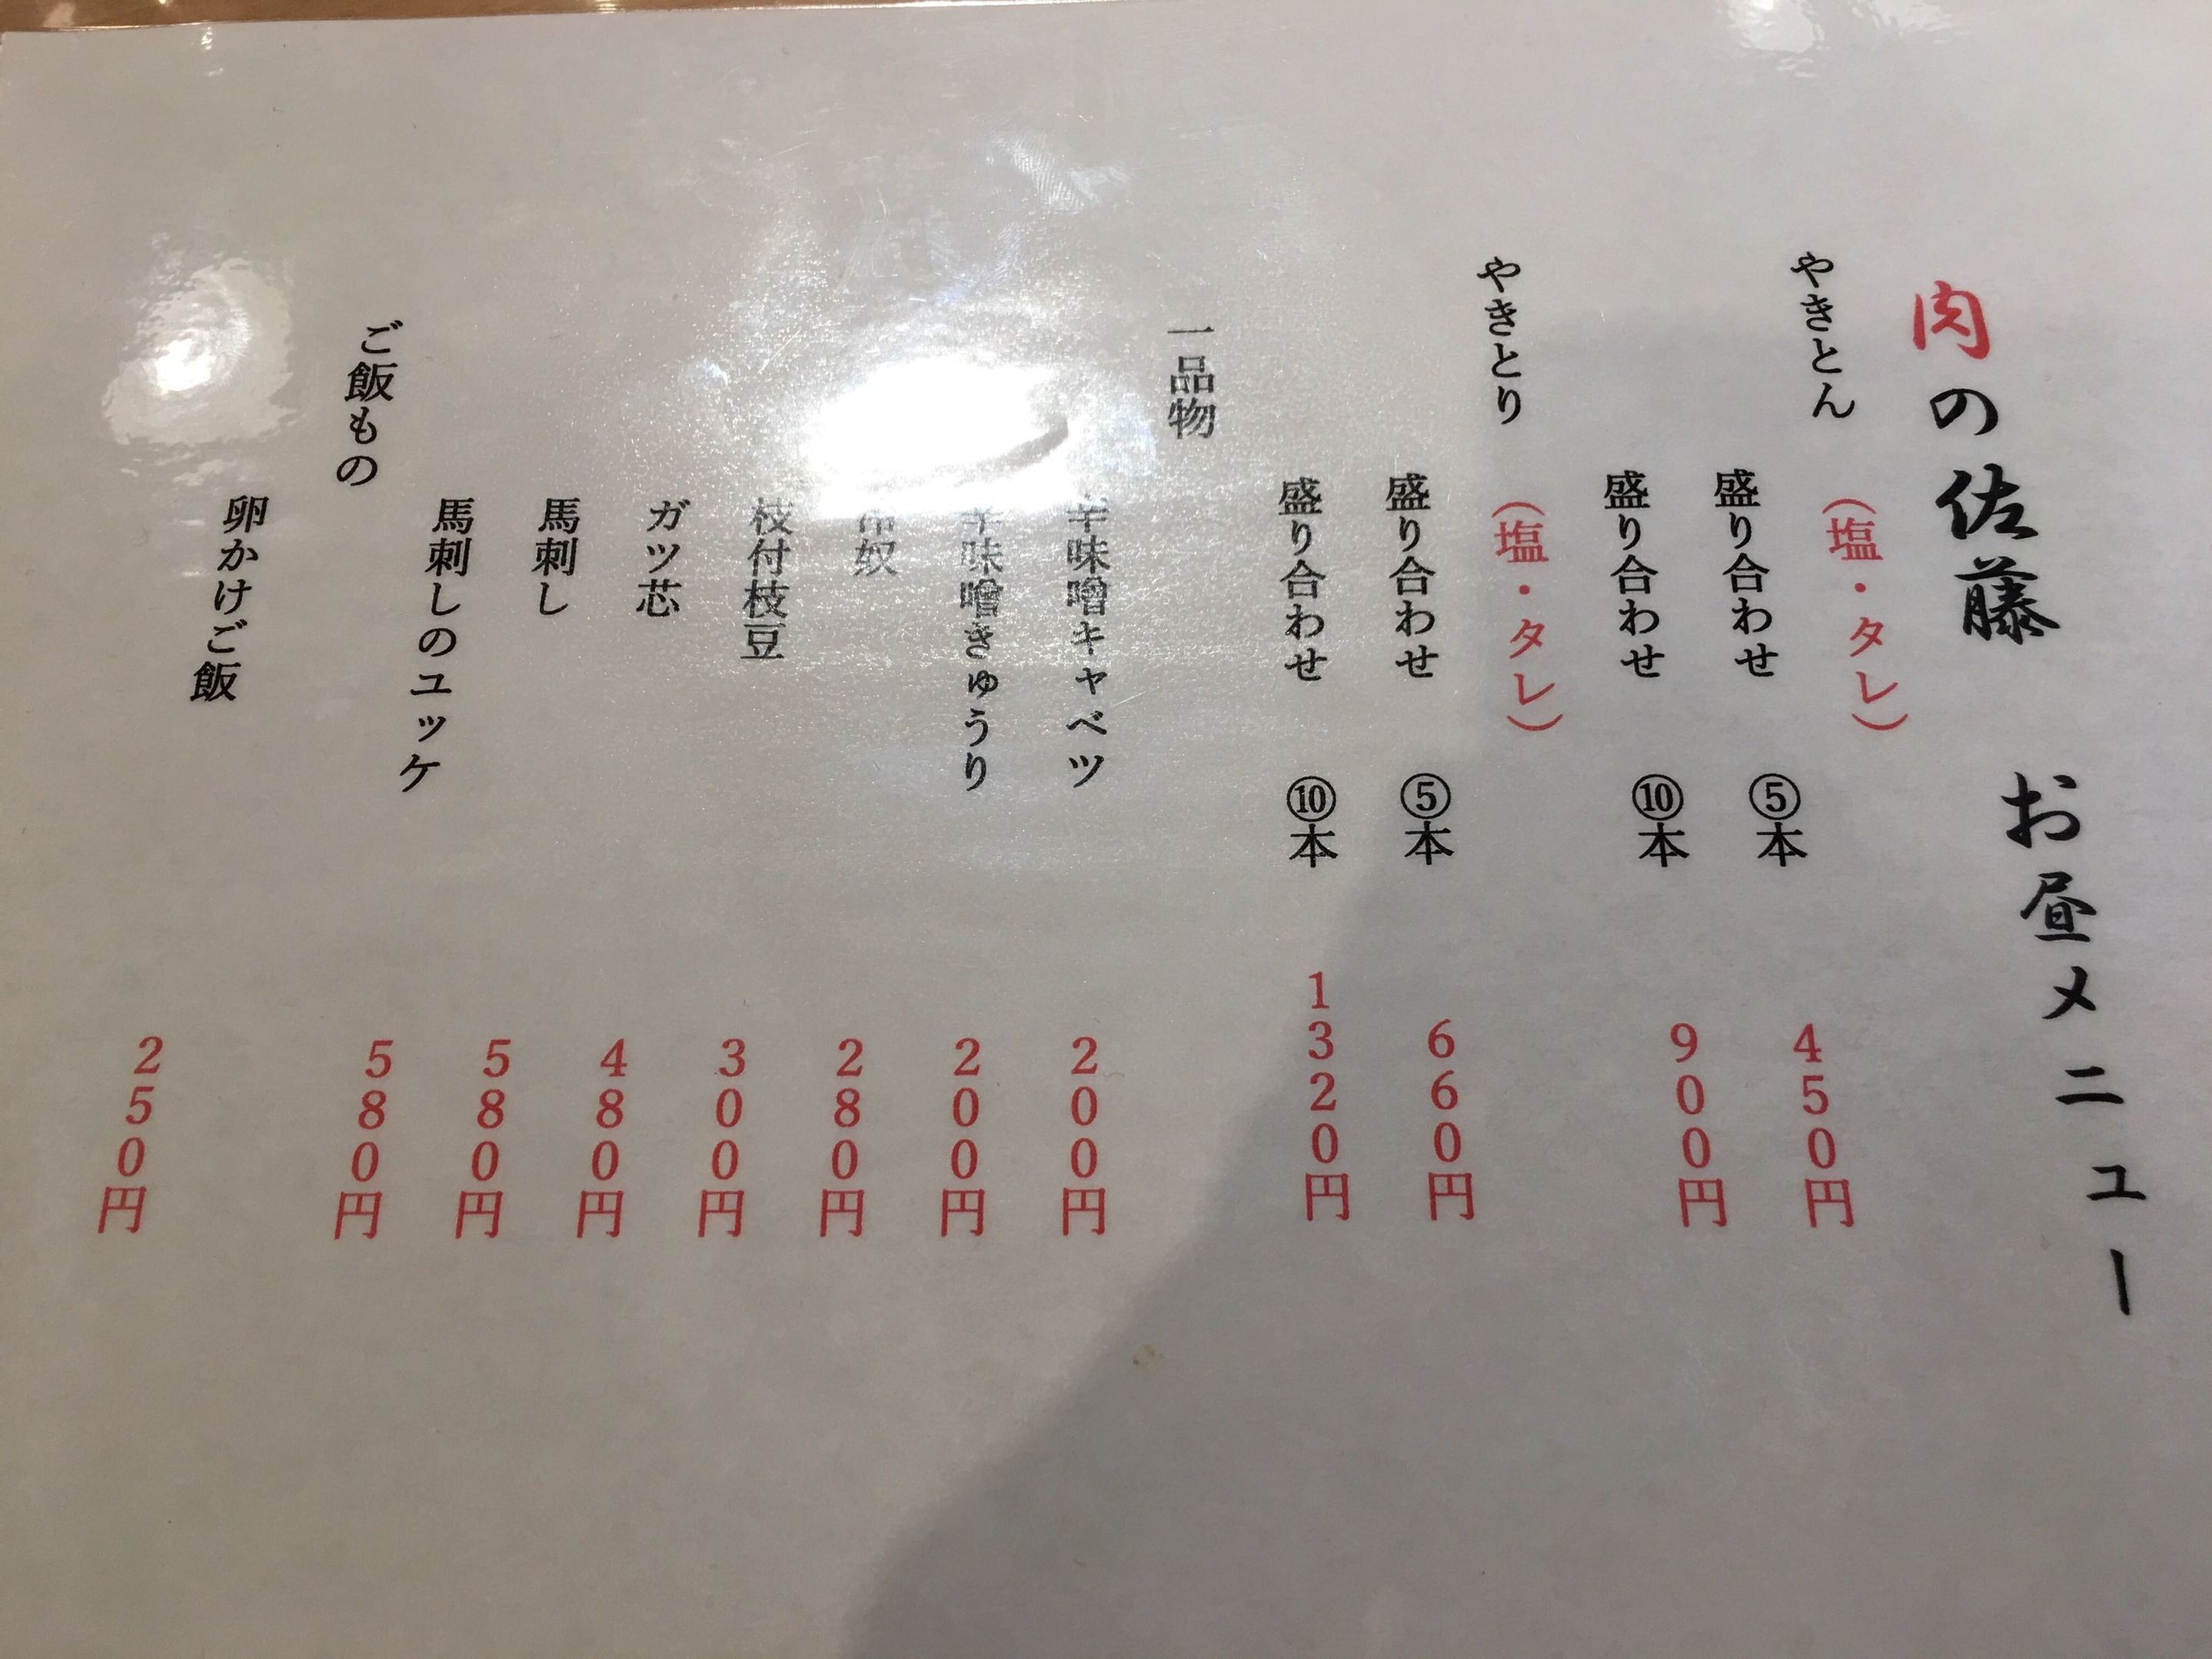 肉の佐藤 お昼メニュー
やきとん (塩・タレ)
盛り合わせ ⑤本 450円
盛り合わせ ⑩本 900円
やきとり (塩・タレ)
盛り合わせ ⑤本 660円
盛り合わせ ⑩本 1320円
一品物
辛味噌キャベツ 200円
辛味噌きゅうり 200円
冷奴 280円
枝付枝豆 300円
ガツ芯 480円
馬刺し 580円
馬刺しのユッケ 580円
ご飯もの
卵かけご飯 250円